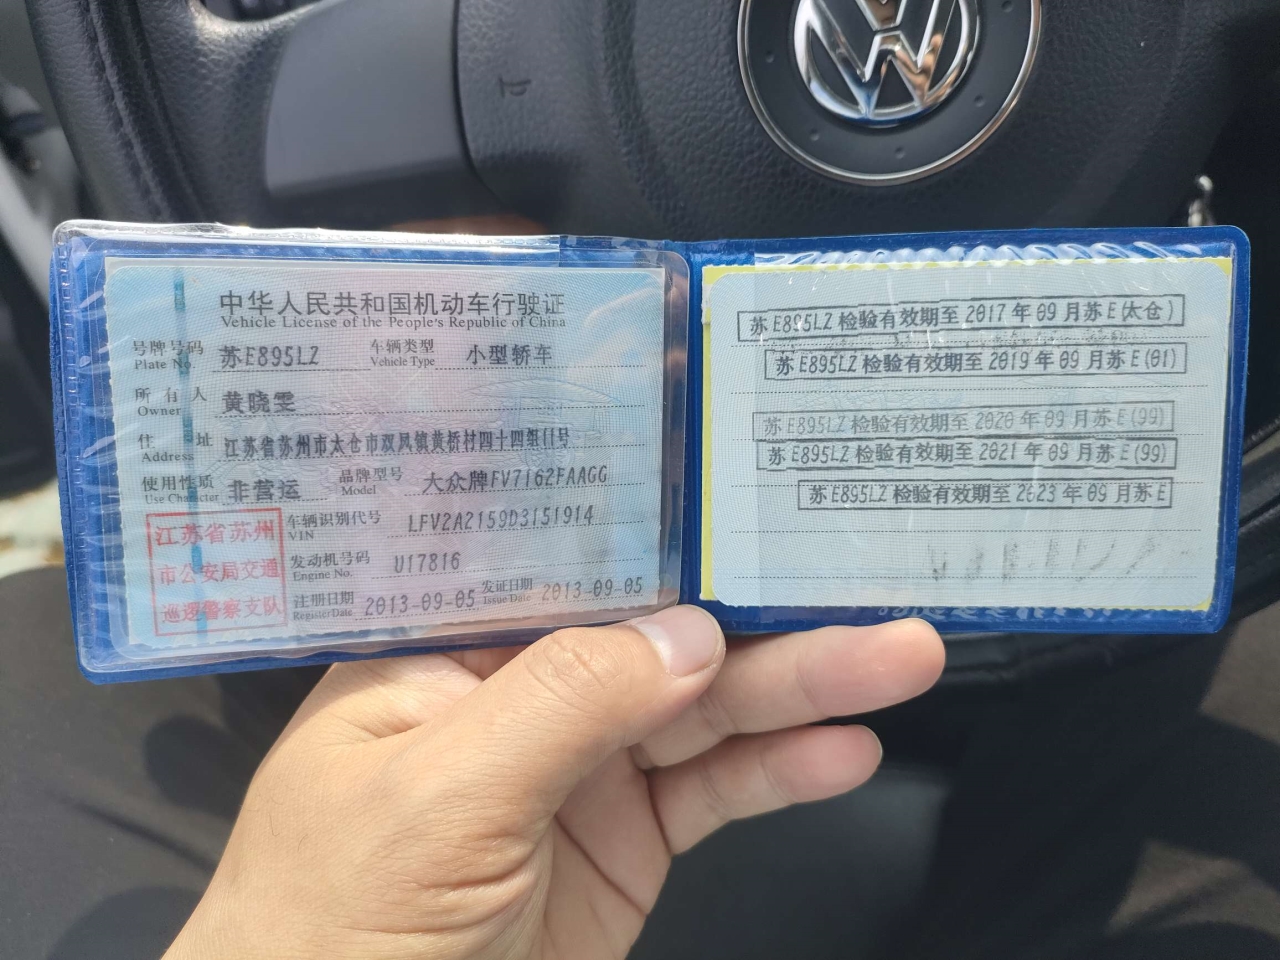 中华人民共和国机动车行驶证
Vehicle License of the People's Republic of China
号牌号码 苏E895LZ 车辆类型 小型轿车
Plate No. Vehicle Type
所有人 黄晓雯
Owner
住址 江苏省苏州市太仓市双凤镇黄桥村四十四组11号
Address
使用性质 非营运 品牌型号 大众牌FV7162FAAGG
Use Character Model
江苏省苏州
市公安局交通
巡逻警察支队
车辆识别代号 LFV2A2159D3151914
VIN
发动机号码 U17816
Engine No.
注册日期 2013-09-05 发证日期 2013-09-05
Register Date Issue Date
苏E895LZ 检验有效期至 2017 年 09 月苏 E (太仓)
苏 E895LZ 检验有效期至 2019 年 09 月苏 E (01)
苏 E895LZ 检验有效期至 2020 年 09 月苏 E (99)
苏 E895LZ 检验有效期至 2021 年 09 月苏 E (99)
苏 E895LZ 检验有效期至 2023 年 09 月苏 E